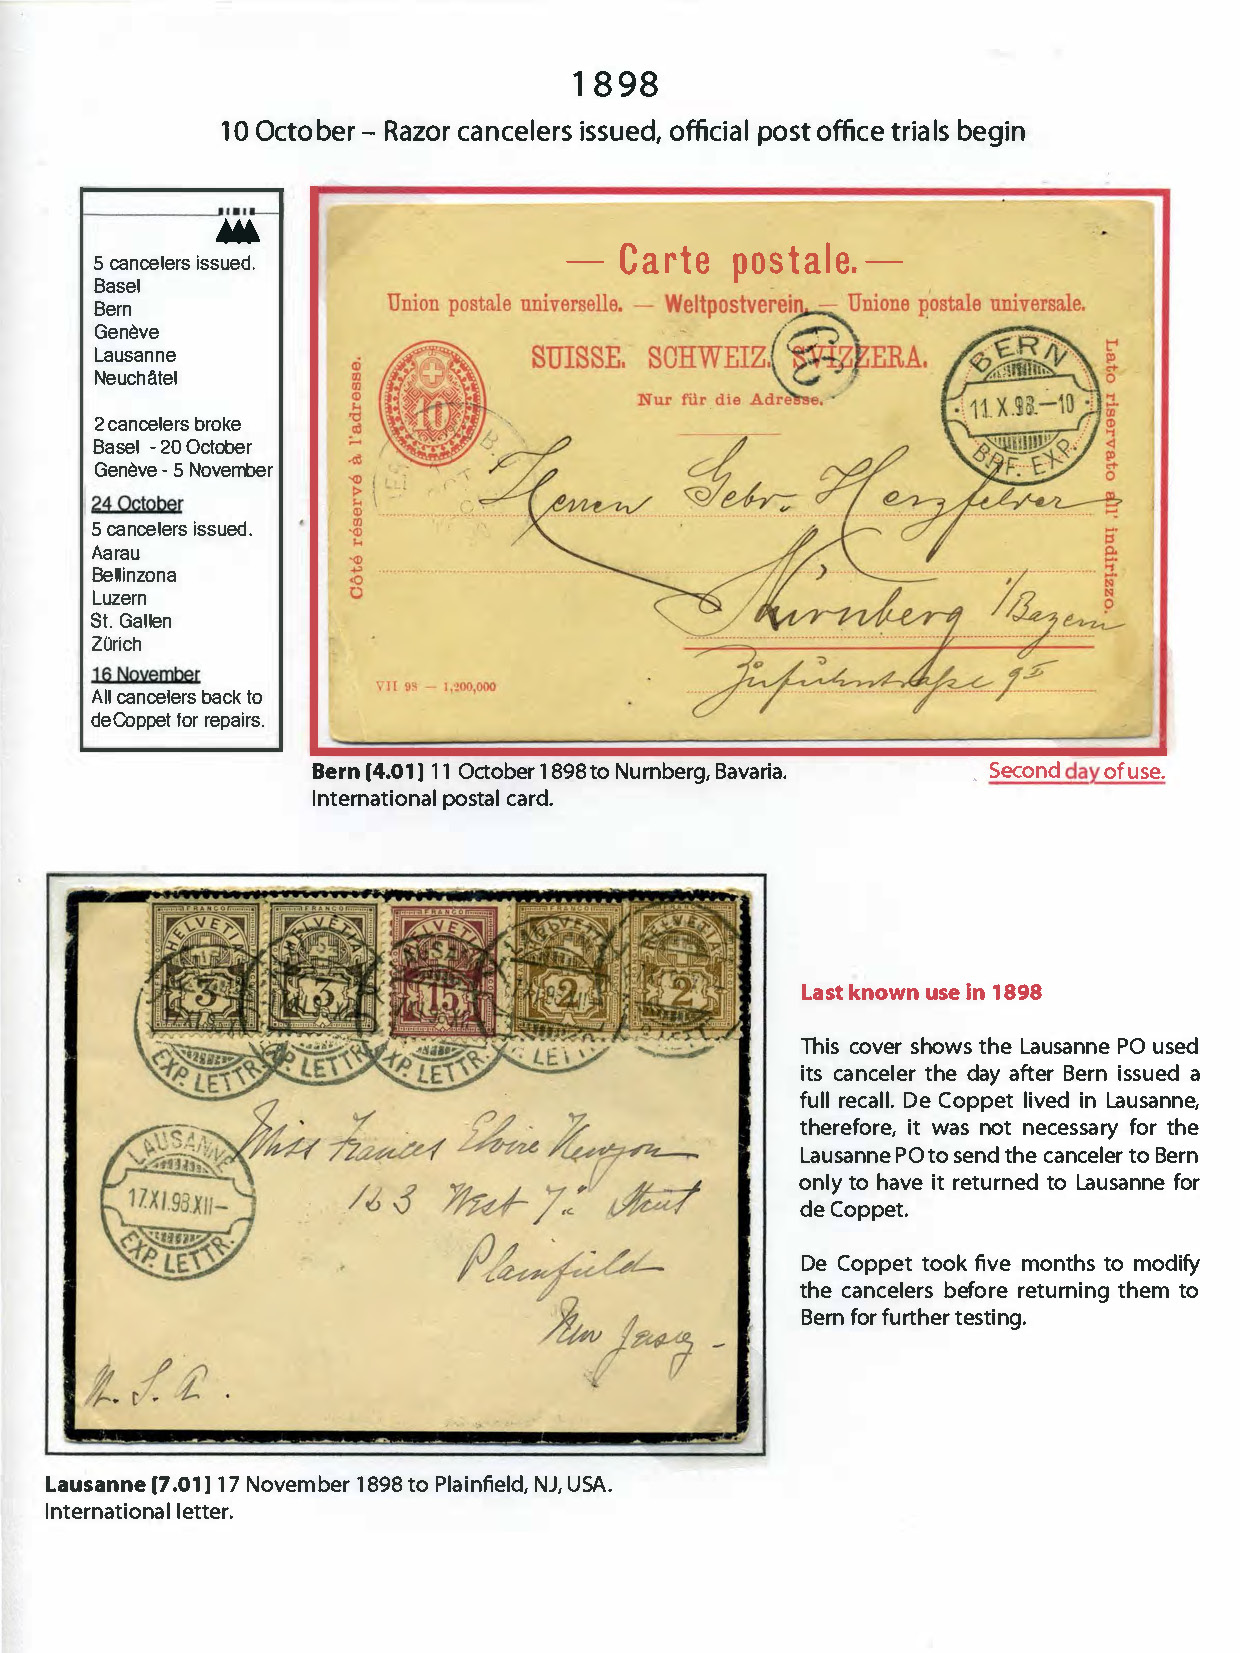 1898
10 October – Razor cancelers issued, official post office trials begin
5 cancelers issued.
Basel
Bern
Genève
Lausanne
Neuchâtel
2 cancelers broke
Basel - 20 October
Genève - 5 November
24 October
5 cancelers issued.
Aarau
Bellinzona
Luzern
St. Gallen
Zürich
16 November
All cancelers back to
deCoppet for repairs.
— Carte postale. —
Union postale universelle. — Weltpostverein. — Unione postale universale.
SUISSE. SCHWEIZ. SVIZZERA.
Nur für die Adresse.
Côté réservé à l'adresse.
Lato riservato all' indirizzo.
10
39
BERN
11.X.98.–10
BRF. EXP.
Herren Gebr. Herzfelder
Nürnberg i/Bayern
VII 98 — 1,200,000
Bern [4.01] 11 October 1898 to Nurnberg, Bavaria.
Second day of use.
International postal card.
FRANCO FRANCO FRANCO FRANCO
HELVETIA HELVETIA HELVETIA HELVETIA HELVETIA
3 3 15 2 2
EXP. LETTR. EXP. LETTR. EXP. LETTR.
LAUSANNE
17.XI.98.XII–
EXP. LETTR.
Miss Frances Elvire
163 West 7th Street
Plainfield
New Jersey –
U. S. A.
Last known use in 1898
This cover shows the Lausanne PO used
its canceler the day after Bern issued a
full recall. De Coppet lived in Lausanne,
therefore, it was not necessary for the
Lausanne PO to send the canceler to Bern
only to have it returned to Lausanne for
de Coppet.
De Coppet took five months to modify
the cancelers before returning them to
Bern for further testing.
Lausanne [7.01] 17 November 1898 to Plainfield, NJ, USA.
International letter.